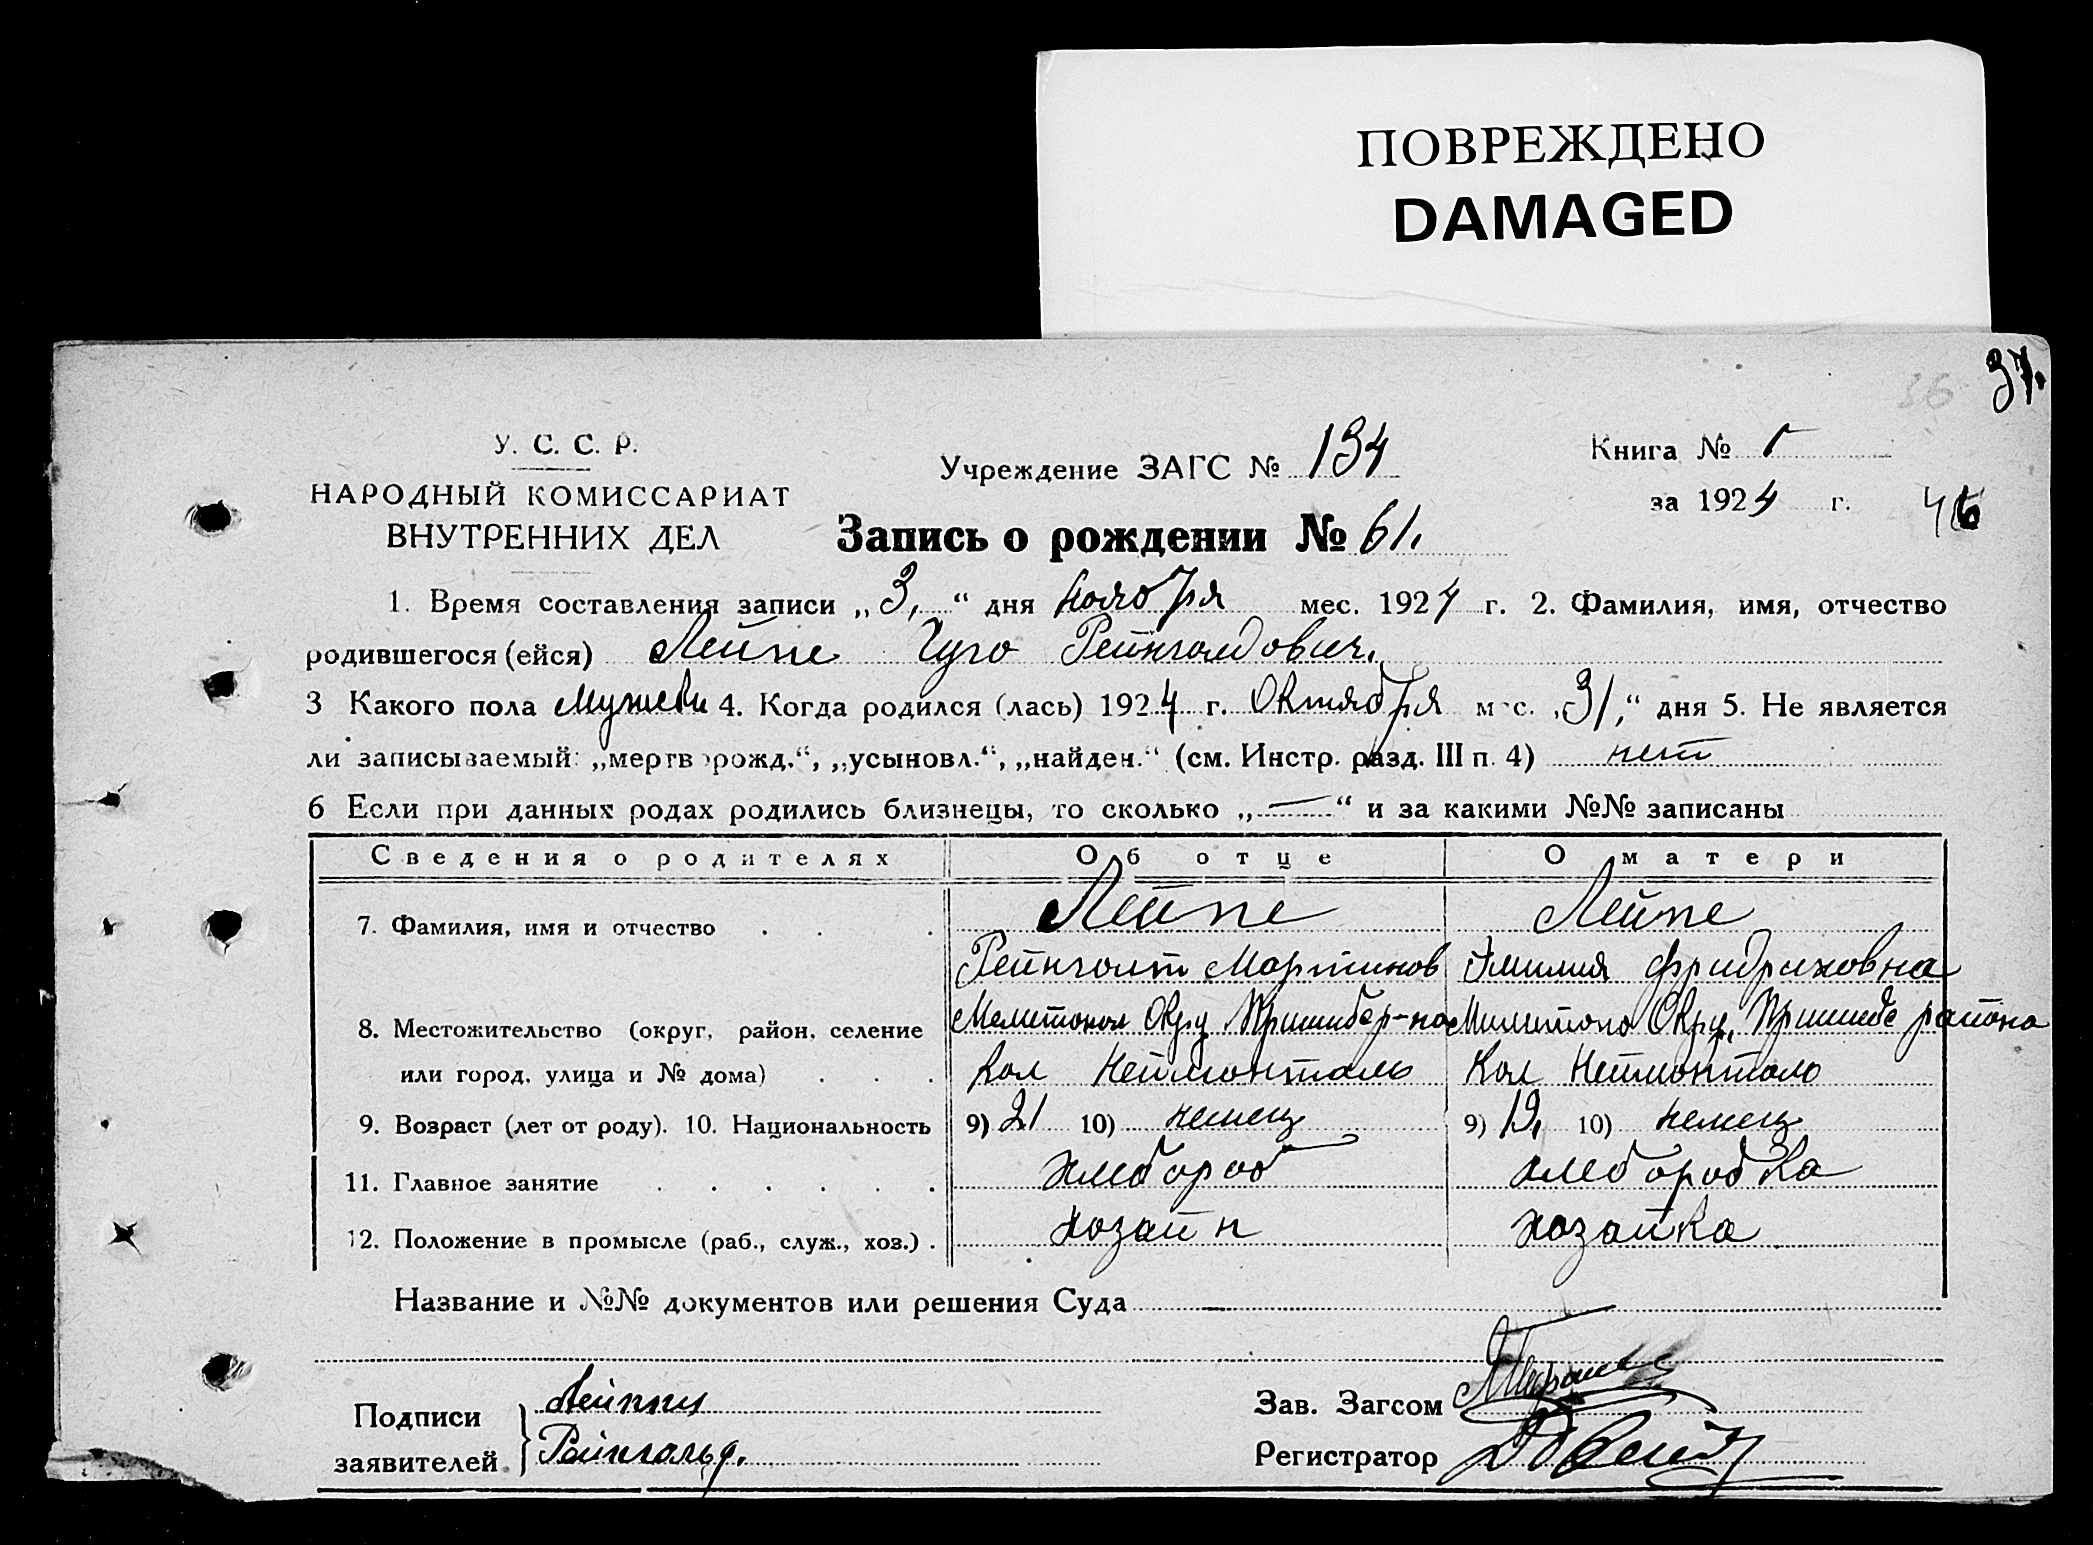 ПОВРЕЖДЕНО
DAMAGED
36 37.
У. С. С. Р.
НАРОДНЫЙ КОМИССАРИАТ
ВНУТРЕННИХ ДЕЛ
Учреждение ЗАГС № 134
Книга № 1
за 1924 г. 46
Запись о рождении № 61.
1. Время составления записи „ 3. “ дня ноября мес. 1924 г. 2. Фамилия, имя, отчество
родившегося (ейся) Лейпе Гуго Рейнголдович.
3 Какого пола Мужски 4. Когда родился (лась) 1924 г. Октября мес. „31,“ дня 5. Не является
ли записываемый: „мертворожд.“, „усыновл.“, „найден.“ (см. Инстр. разд. III п. 4) нет
6 Если при данных родах родились близнецы, то сколько „—“ и за какими №№ записаны
Сведения о родителях Об отце О матери
7. Фамилия, имя и отчество Лейпе Лейпе
Рейнголт Мартинов Эмилия Фридриховна
8. Местожительство (округ, район, селение Мелитопол Окру Пришибер-на Милитопо Окру, Пришибе района
или город, улица и № дома) Кол Неймонталь Кол Неймонталь
9. Возраст (лет от роду). 10. Национальность 9) 21 10) немец 9) 19, 10) немец
11. Главное занятие хлебороб хлеборобка
12. Положение в промысле (раб., служ., хоз.) хозаин хозаика
Название и №№ документов или решения Суда —
Подписи Лейппи Зав. Загсом
заявителей Рейнгольд. Регистратор